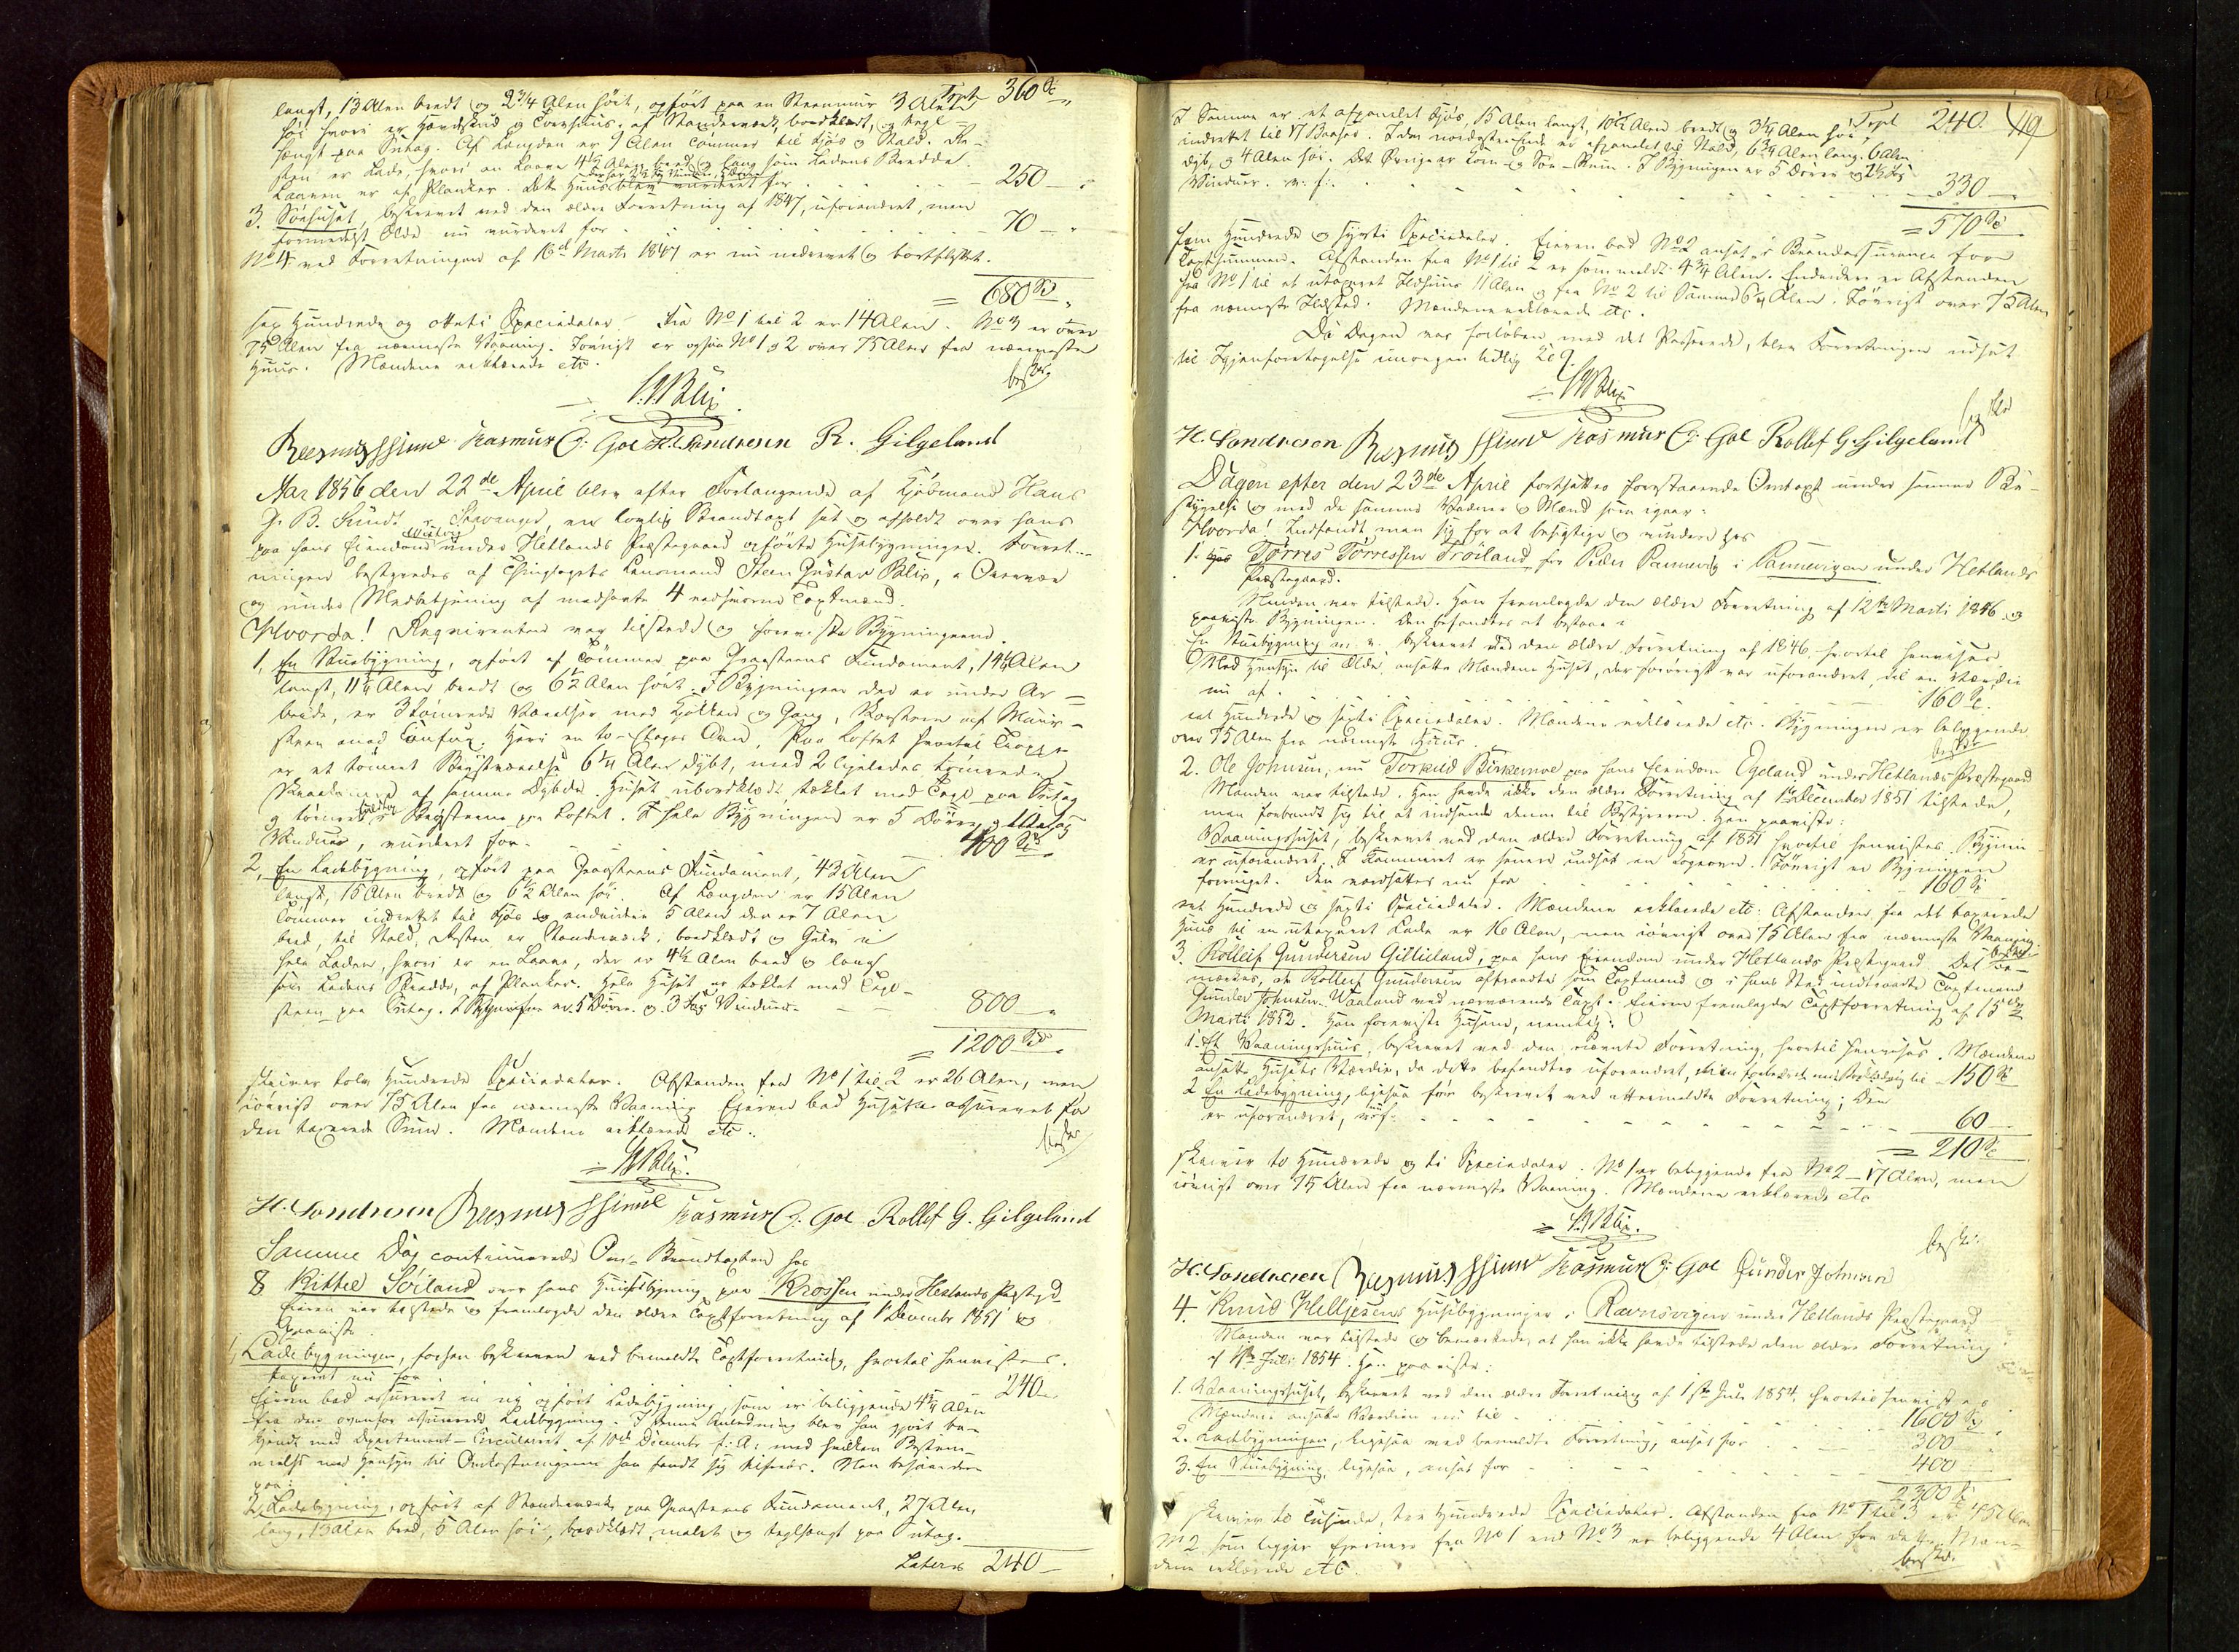 Trpt 360 Sp „
langt, 13 Alen bredt og 2 3/4 Alen høit, opført paa en Steenmuur 3 Alen
høi hvori er og Tørvhuus, af Stænderverk, bordklædt, og tegl=
hængt paa Sutag. Af Længden er 9 Alen Tømmer til Fjøs og Stald. Re-
sten er Lade, hvori en Laave 4 1/2 Alen bred og lang som Ladens Bredde.
Laaven er af Planker. Dette Huus blev vurderet for 250 — „
3. Søehuset, beskrevet ved den ældre Forretning af 1847, uforandret, men
formedelst Ælde nu vurderet for 70 — „
No 4 ved Forretningen af 16de Marts 1847 er nu nedrevet og bortflyttet.
= 680 Sp „
sex Hundrede og otteti Speciedaler. Fra No 1 til 2 er 14 Alen. No 3 er over
75 Alen fra nærmeste Vaaning. Iøvrigt er ogsaa No 1 og 2 over 75 Alen fra nærmeste
Huus. Mændene erklærede etc.
S. G. Blix
Rasmus Rasmus C: Goe H. Sondresen R. Gilgeland
Aar 1856 den 22de April blev efter Forlangende af Kjøbmand Hans
G. B. Sundt i Stavanger, en lovlig Brandtaxt sat og afholdt over hans
paa hans Eiendom under Hetlands Præstegaard opførte Huusebygninger. Forret-
ningen bestyredes af Thinglagets Lensmand Steen Gustav Blix, i Overvær
og under Medbetjening af medhavte 4 edsvorne Taxtmænd.
Hvorda! Reqvirenten var tilstede og foreviste Bygningerne.
1. En Stuebygning, opført af Tømmer paa Graasteens Fundament, 14 1/2 Alen
langt, 11 1/4 Alen bredt og 6 1/2 Alen høit. I Bygningen der er under Ar=
beide, er 3 tømrede Værelser med Kjøkken og Gang, Skorsteen af Muur-
steen med Heri en to-Etages Ovn. Paa Loftet hvortil Trappe
er et tømret Qvistværelse 6 1/4 Alen dybt, med 2 ligeledes tømrede
af samme Dybde. Huset ubordklædt tækket med Tegl paa Sutag
og tømret paa Loftet. I hele Bygningen er 5 Døre og 11 Fag
Vinduer, vurderet for 400 Sp „
2, En Ladebygning, opført paa Graasteens Fundament, 42 Alen
langt, 15 Alen bredt og 6 1/2 Alen høi. Af Længden er 15 Alen
Tømmer indrettet til Fjøs og endvidere 5 Alen der er 7 Alen
bred, til Stald, Resten er Stænderverk, bordklædt og Gulv i
hele Laden, hvori er en Laave, der er 4 1/2 Alen bred og lang
som Ladens Bredde, af Planker. Hele Huset er tækket med Tegl-
steen paa Sutag. I Bygningen er 5 Døre og 3 Fag Vinduer. — — 800 — „
= 1200 Sp „
skriver tolv Hundrede Speciedaler. Afstanden fra No 1 til 2 er 26 Alen, men
iøvrigt over 75 Alen fra nærmeste Vaaning. Eieren bad Husene assureret for
den taxerede Sum. Mændene erklærede etc.:
S G Blix.
H. Sondresen Rasmus Rasmus C: Goe Rollef G. Gilgeland
Samme Dag continuerede Om-Brandtaxten hos
8 Kittel Soiland over hans Huusbygning paa Krossen under Hetlands Præstegd.
Eieren var tilstede og fremlagde den ældre Taxtforretning af 1ste Decembr 1851 og
paaviste
1, Ladebygningen, forhen beskreven ved bemeldte Taxtforretning, hvortil henvises.
taxeret nu for 240 —
Eieren bad assureret en ny opført Ladebygning, som er beliggende 4 3/4 Alen
fra den ovenfor assurerede Ladebygning. I denne Anledning blev han gjort be-
kjendt med Departements-Circulairet af 10de Decembr f: A: med hvilken Bestem-
melse med Hensyn til Omkostningerne han fandt sig tilfreds. Man besaae der-
paa:
2, Ladebygning, opført af Stænderverk paa Graasteens Fundament, 27 Alen
lang, 13 Alen bred, 5 Alen høi, bordklædt, malet og teglhængt paa Sutag.
Lateris 240 —
Trpt 240. 119
I Samme er et afpanelet Fjøs, 15 Alen langt, 10 1/2 Alen bredt og 3 1/4 Alen høi
indrettet til 17 Baase. I den nordøstre Ende er afpanelet til Stald, 6 3/4 Alen lang, 6 Alen
dyb, og 4 Alen høi. Det Øvrige er Korn og Høe-Rum. I Bygningen er 5 Døre og 2 1/2 Fag
Vinduer. v: f: 330 —
= 570 Sp
fem Hundrede og sytti Speciedaler. Eieren bad No 2 ansat i Brandassurance for
Taxtsummen. Afstanden fra No 1 til 2 er som meldt 4 3/4 Alen. Endvidere er Afstanden
fra No 1 til et utaxeret Ildhuus 11 Alen og fra No 2 til Samme 6 Alen. Iøvrigt over 75 Alen
fra nærmeste Ildsted. Mændene erklærede etc.
Da Dagen var forløben med det Passerede, blev Forretningen udsat
til Igjenforetagelse imorgen tidlig Kl 9.
S G Blix
H. Sondresen Rasmus Rasmus C: Goe Rollef G. Gilgeland
Dagen efter den 23de April fortsattes forestaaende Omtaxt under samme Be-
styrelse og med de samme Vidner og Mænd som igaar:
Hvorda! Indfandt man sig for at besigtige og vurdere hos
1. Tørres Tørressen Troiland, for Peder Ramsvig i Ramsvigen under Hetlands
Præstegaard.
Manden var tilstede. Han fremlagde den ældre Forretning af 12te Marts 1846 og
paaviste Bygningen. Den befandtes at bestaae i
En Stuebygning m. v. beskrevet ved den ældre Forretning af 1846 hvortil henvises
Med Hensyn til Ælde, ansatte Mændene Huset, der forøvrigt var uforandret, til en Værdie
nu af 160 Sp.
eet Hundrede og sexti Speciedaler. Mændene erklærede etc. Bygningen er beliggende
over 75 Alen fra nærmeste Huus.
2. Ole Johnsen, nu Torkild Birkemoe paa hans Eiendom Egeland under Hetlands Præstegaard
Manden var tilstede. Han havde ikke den ældre Forretning af 1ste December 1851 tilstede,
men forbandt sig til at indsende denne til Bestyreren. Han paaviste:
Vaaningshuset, beskrevet ved den ældre Forretning af 1851 hvortil henvises. Bygnin
er uforandret. I Kammeret er senere indsat en Kogeovn. Iøvrigt er Bygningen
fornyet. Den værdsattes nu for 160 Sp
eet Hundrede og sexti Speciedaler. Mændene erklærede etc: Afstanden fra det taxerede
Huus til en utaxeret Lade er 16 Alen, men iøvrigt over 75 Alen fra nærmeste Vaaning.
3. Rolleif Gundersen Gilleland, paa hans Eiendom under Hetlands Præstegaard. Det be-
mærkes, at Rolleif Gundersen aftraadte som Taxtmand og i hans Sted indtraadte Taxtmand
Gunder Johnsen Waaland ved nærværende Taxt. Eieren fremlagde Taxtforretning af 15de
Marts 1852. Han foreviste Husene, nemlig:
1. Et Vaaningshuus, beskrevet ved den nævnte Forretning, hvortil henvises. Mændene
ansatte Husets Værdie, da dette befandtes uforandret, til 150 Sp
2 En Ladebygning, ligesaa før beskrevet ved ettermeldte Forretning; den
er uforandret, 60 —
= 210 Sp
skriver to Hundrede og ti Speciedaler. No 1 er beliggende fra No 2 — 17 Alen, men
iøvrigt over 75 Alen fra nærmeste Vaaning. Mændene erklærede etc
S G Blix.
H. Sondresen Rasmus Rasmus C: Goe Gunder Johnsen
4. Knud Helliesens Huusebygninger i Ravnsvigen under Hetlands Præstegaard
Manden var tilstede og bemærkede, at han ikke havde tilstede den ældre Forretning
af 1ste Juli 1854. Han paaviste:
1. Vaaningshuset, beskrevet ved den ældre Forretning af 1ste Juli 1854, hvortil henvistes
Mændene ansatte Værdien nu til 1600 Sp „
2. Ladebygningen, ligesaa ved bemeldte Forretning, ansat for 300 „
3. En Stuebygning, ligesaa, ansat for 400
2300 Sp
skriver to Tusinde, tre Hundrede Speciedaler. Afstanden fra No 1 til 3 er 45 Alen
No 2 som ligger fjernere fra No 1 end No 3 er beliggende 4 Alen fra dette. Mæn-
dene erklærede etc.